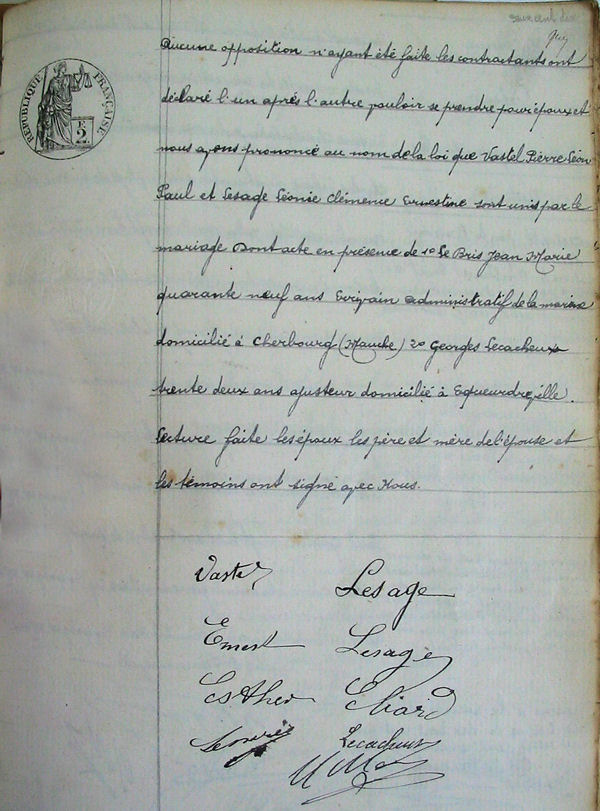 RÉPUBLIQUE FRANÇAISE
aucune opposition n'ayant été faite les contractants ont
déclaré l'un après l'autre vouloir se prendre pour époux et
nous avons prononcé au nom de la loi que Vastel Pierre Léon
Paul et Lesage Léonie Clémence Ernestine sont unis par le
mariage Dont acte en présence de 1º Le Bris Jean Marie
quarante neuf ans Ecrivain administratif de la marine
domicilié à Cherbourg (Manche) 2º Georges Lecacheux
trente deux ans ajusteur domicilié à Equeurdreville.
Lecture faite les époux les père et mère de l'épouse et
les témoins ont signé avec Nous.
Vastel Lesage
Ernest Lesage
Esther Liard
Lecacheux